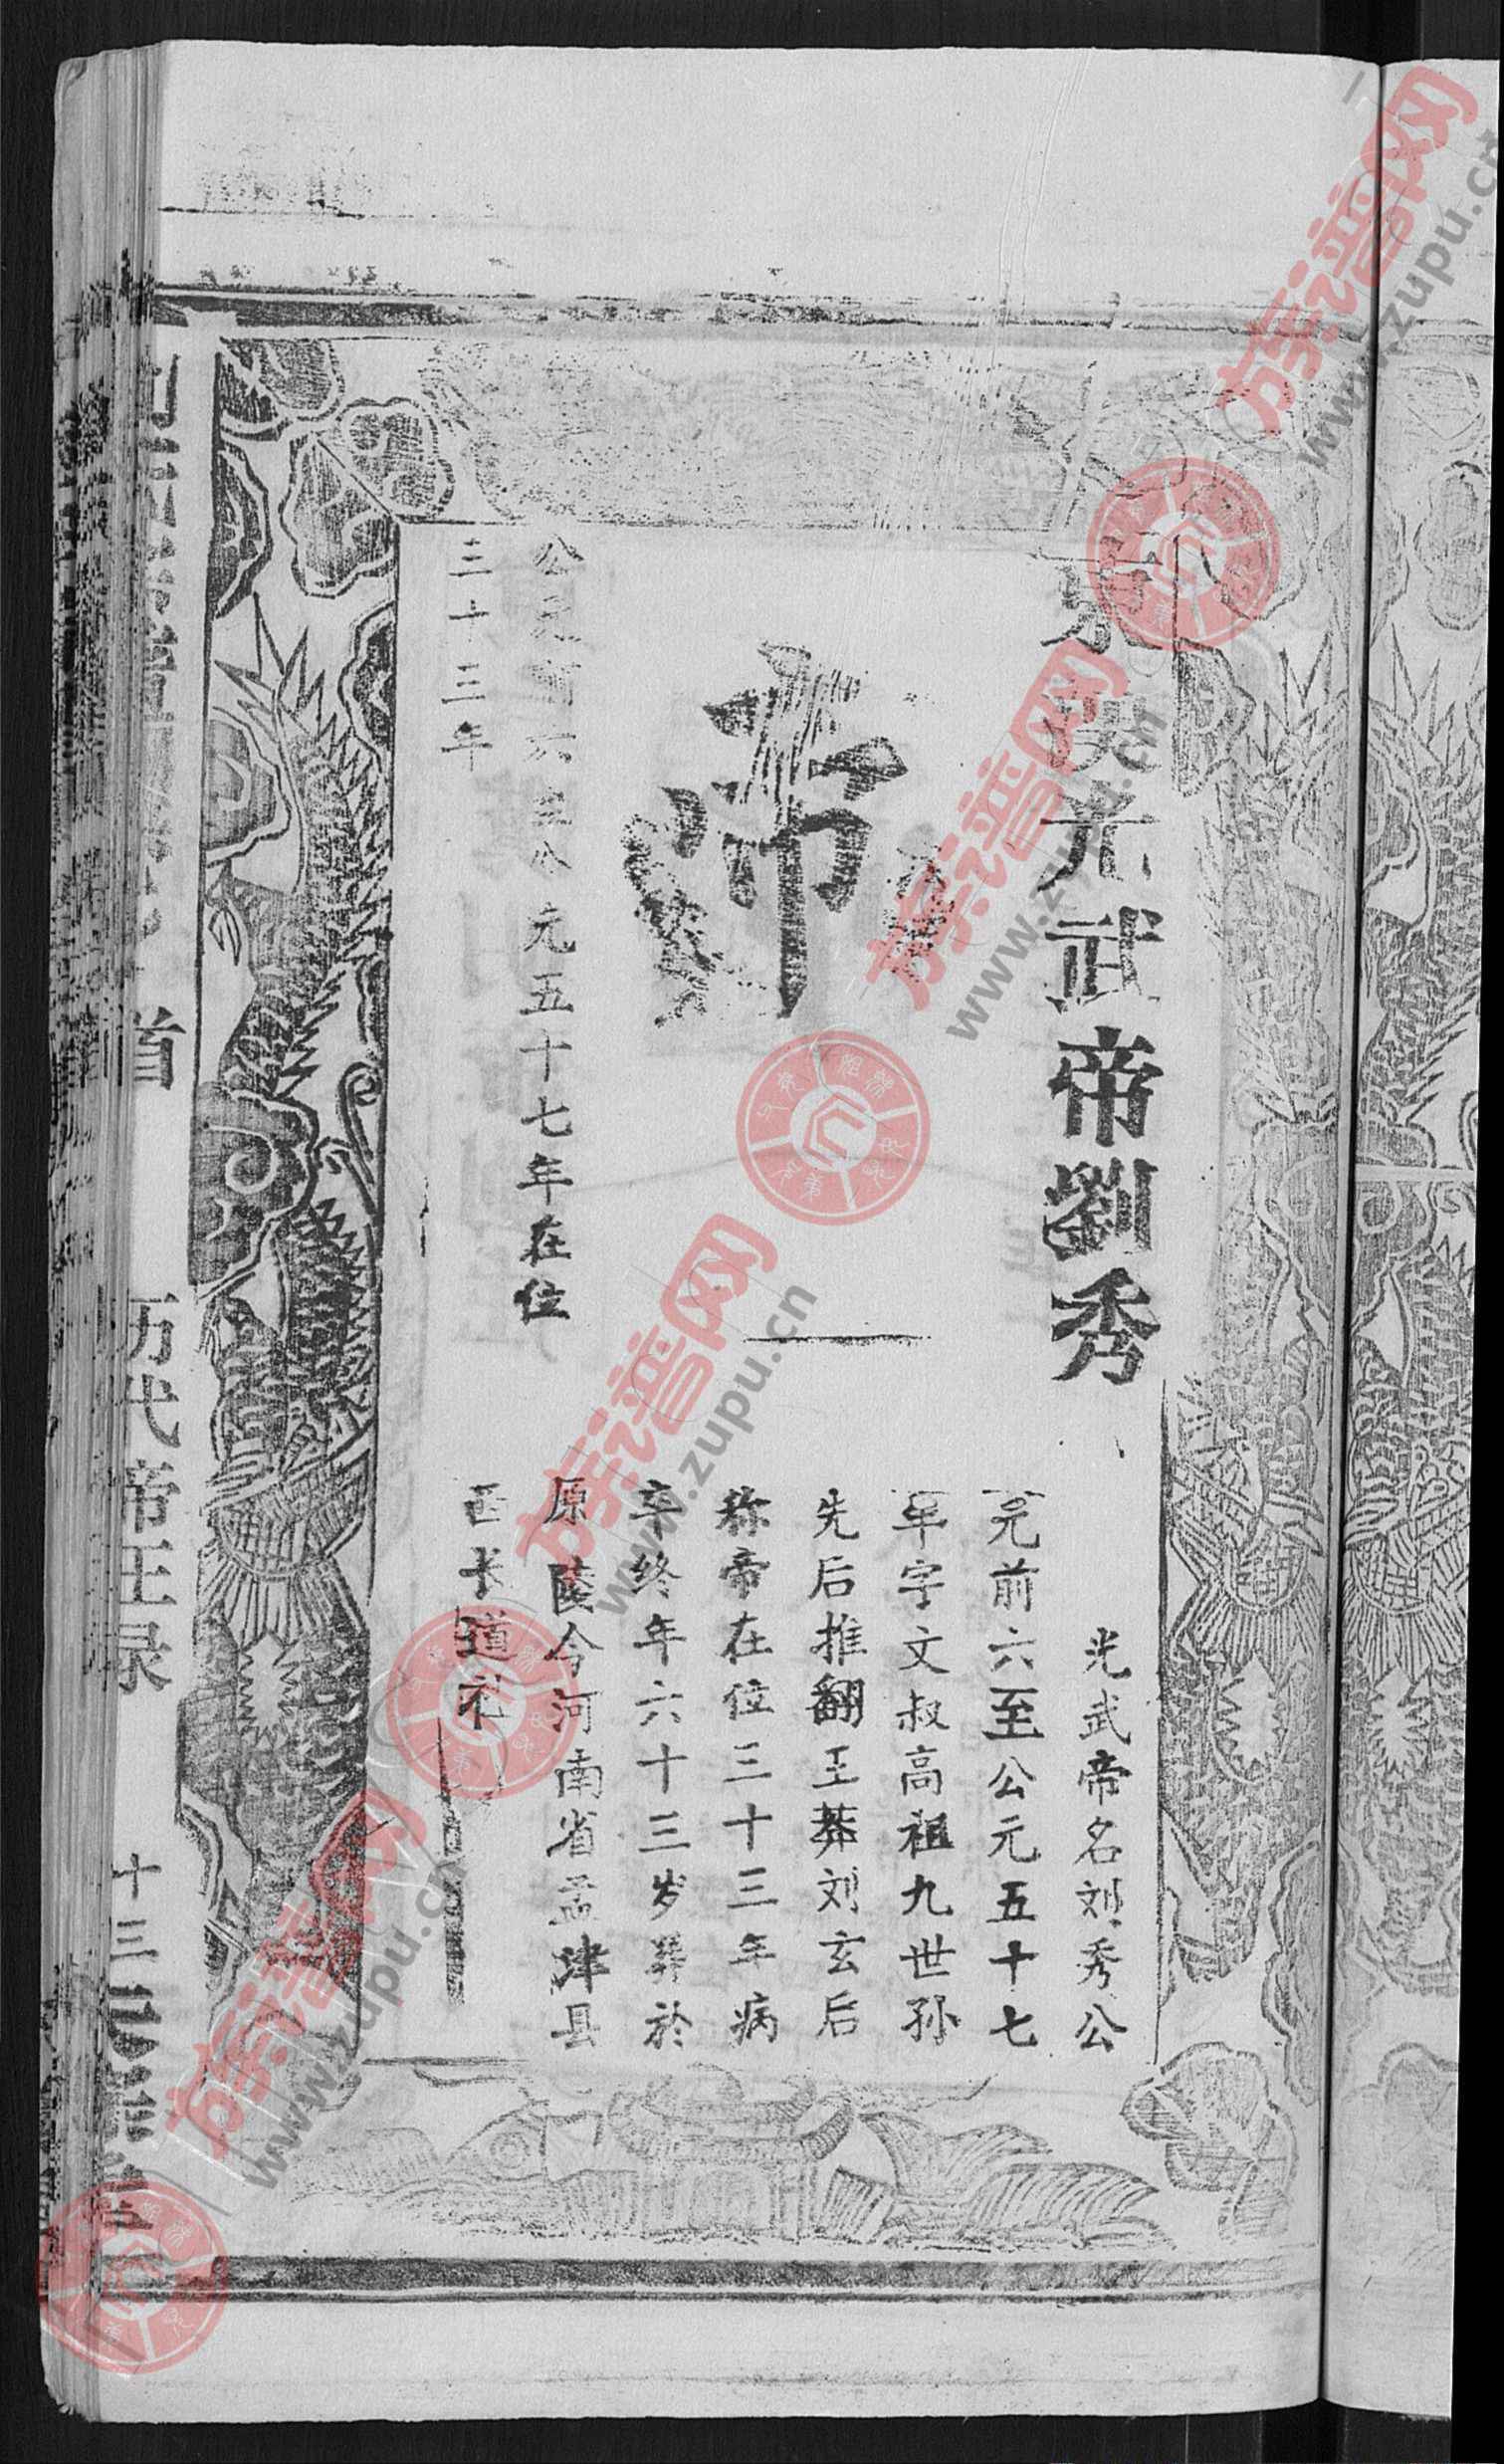 東漢光武帝劉秀
帝
公元前六至公元五十七年在位
三十三年
光武帝名刘秀公
元前六至公元五十七
年字文叔高祖九世孙
先后推翻王莽刘玄后
称帝在位三十三年病
卒终年六十三岁葬於
原陵今河南省孟津县
西长道礼
首
历代帝王录
十三
族谱网
www.zupu.cn
族谱网
www.zupu.cn
族谱网
www.zupu.cn
族谱网
www.zupu.cn